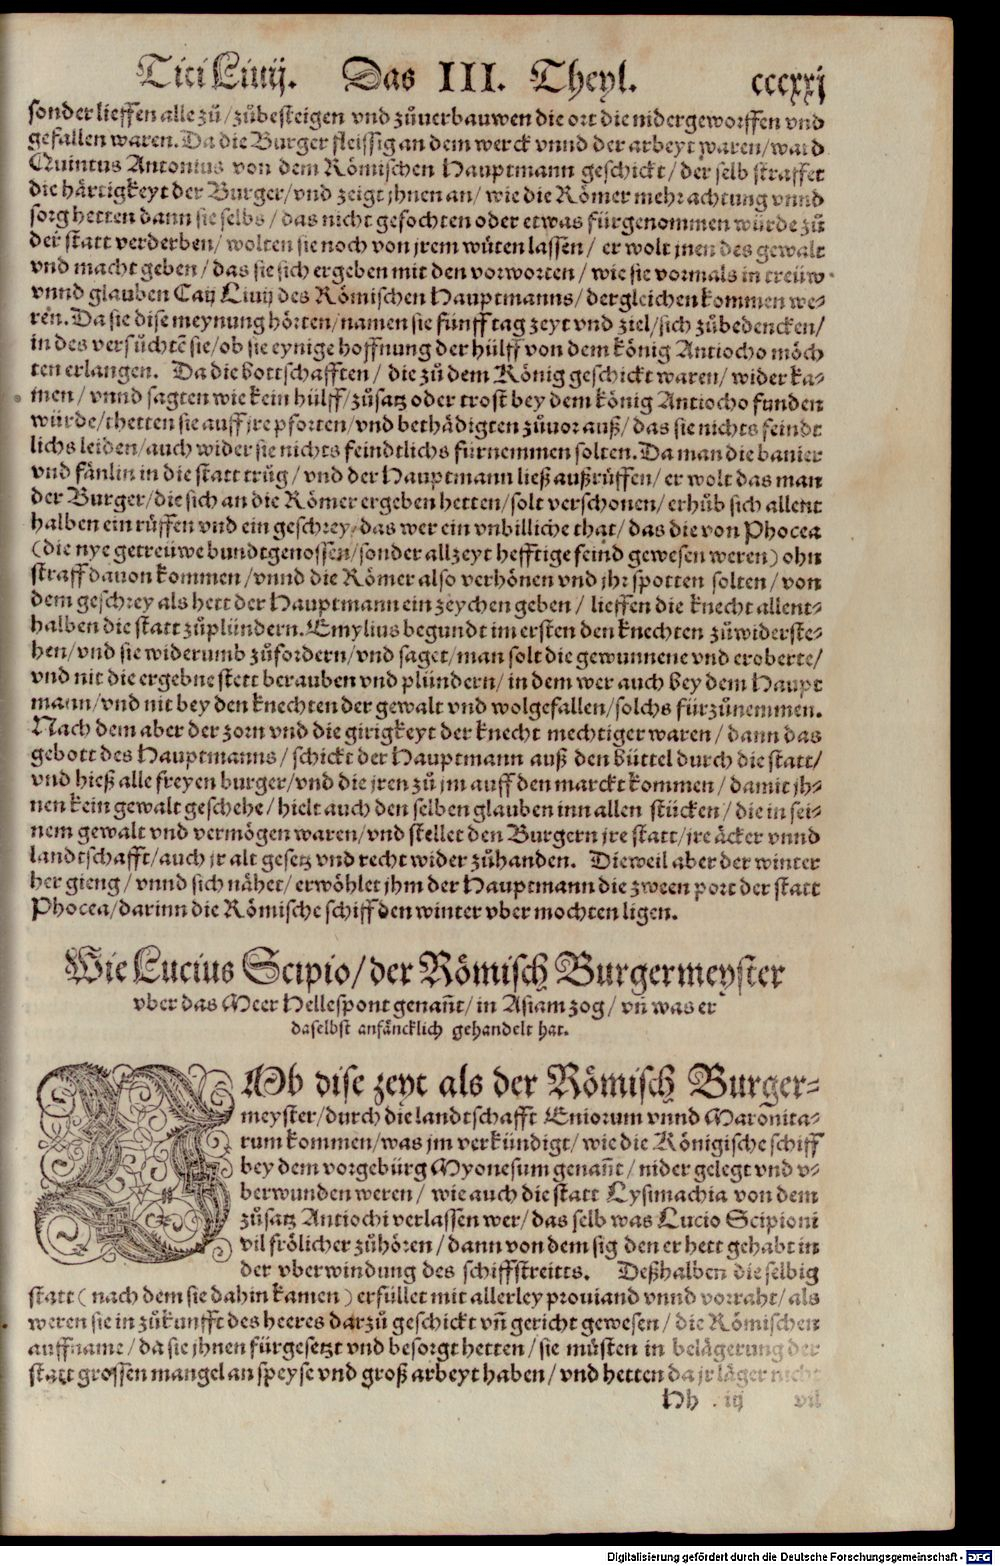 Titi Liuij. Das III. Theyl. cccxxj
sonder lieffen alle zů / zůbesteigen vnd zůuerbauwen die ort die nidergeworffen vnd
gefallen waren. Da die Burger fleissig an dem werck vnnd der arbeyt waren / ward
Quintus Antonius von dem Römischen Hauptmann geschickt / der selb straffet
die härtigkeyt der Burger / vnd zeigt jhnen an / wie die Römer mehr achtung vnnd
sorg hetten dann sie selbs / das nicht gefochten oder etwas fürgenommen würde zů
der statt verderben / wolten sie noch von jrem wüten lassen / er wolt jnen des gewalt
vnd macht geben / das sie sich ergeben mit den vorworten / wie sie vormals in treüw
vnnd glauben Caij Liuij des Römischen Hauptmanns / dergleichen kommen we-
ren. Da sie dise meynung hörten / namen sie fünff tag zeyt vnd ziel / sich zůbedencken /
in des versůchtē sie / ob sie eynige hoffnung der hülff von dem könig Antiocho möch
ten erlangen. Da die bottschafften / die zů dem König geschickt waren / wider ka-
men / vnnd sagten wie kein hülff / zůsatz oder trost bey dem könig Antiocho funden
würde / thetten sie auff jre pforten / vnd bethädigten zůuor auß / das sie nichts feindt
lichs leiden / auch wider sie nichts feindtlichs fürnemmen solten. Da man die banier
vnd fänlin in die statt trůg / vnd der Hauptmann ließ außrůffen / er wolt das man
der Burger / die sich an die Römer ergeben hetten / solt verschonen / erhůb sich allent
halben ein růffen vnd ein geschrey / das wer ein vnbilliche that / das die von Phocea
(die nye getreüwe bundtgenossen / sonder allzeyt hefftige feind gewesen weren) ohn
straff dauon kommen / vnnd die Römer also verhönen vnd jhr spotten solten / von
dem geschrey als hett der Hauptmann ein zeychen geben / lieffen die knecht allent-
halben die statt zůplündern. Emylius begundt im ersten den knechten zůwiderste-
hen / vnd sie widerumb zůfordern / vnd saget / man solt die gewunnene vnd eroberte /
vnd nit die ergebne stett berauben vnd plündern / in dem wer auch bey dem Haupt
mann / vnd nit bey den knechten der gewalt vnd wolgefallen / solchs fürzůnemmen.
Nach dem aber der zorn vnd die girigkeyt der knecht mechtiger waren / dann das
gebott des Hauptmanns / schickt der Hauptmann auß den büttel durch die statt /
vnd hieß alle freyen burger / vnd die jren zů jm auff den marckt kommen / damit jh-
nen kein gewalt geschehe / hielt auch den selben glauben inn allen stücken / die in sei-
nem gewalt vnd vermögen waren / vnd stellet den Burgern jre statt / jre äcker vnnd
landtschafft / auch jr alt gesetz vnd recht wider zůhanden. Dieweil aber der winter
her gieng / vnnd sich nähet / erwöhlet jhm der Hauptmann die zween port der statt
Phocea / darinn die Römische schiff den winter vber mochten ligen.
Wie Lucius Scipio / der Römisch Burgermeyster
vber das Meer Hellespont genañt / in Asiam zog / vñ was er
daselbst anfäncklich gehandelt hat.
VOb dise zeyt als der Römisch Burger-
meyster / durch die landtschafft Eniorum vnnd Maronita-
rum kommen / was jm verkündigt / wie die Königische schiff
bey dem vorgebürg Myonesum genañt / nider gelegt vnd v-
berwunden weren / wie auch die statt Lysimachia von dem
zůsatz Antiochi verlassen wer / das selb was Lucio Scipioni
vil frölicher zůhören / dann von dem sig den er hett gehabt in
der vberwindung des schiffstreitts. Deßhalben die selbig
statt (nach dem sie dahin kamen) erfüllet mit allerley prouiand vnnd vorraht / als
weren sie in zůkunfft des heeres darzů geschickt vñ gericht gewesen / die Römischen
auffname / da sie jhnen fürgesetzt vnd besorgt hetten / sie müsten in belägerung der
statt grossen mangel an speyse vnd groß arbeyt haben / vnd hetten da jr läger nicht
Hh iij vil
Digitalisierung gefördert durch die Deutsche Forschungsgemeinschaft - DFG